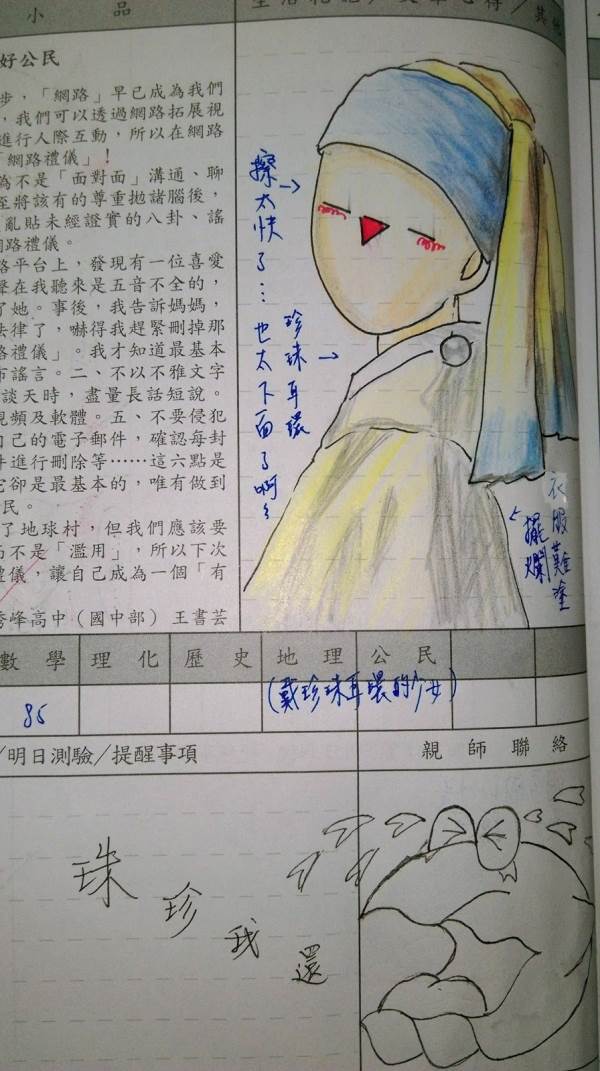 小品
好公民
步，「網路」早已成為我們
，我們可以透過網路拓展視
進行人際互動，所以在網路
「網路禮儀」！
為不是「面對面」溝通、聊
至將該有的尊重拋諸腦後，
亂貼未經證實的八卦、謠
網路禮儀。
路平台上，發現有一位喜愛
聲在我聽來是五音不全的，
了她。事後，我告訴媽媽，
法律了，嚇得我趕緊刪掉那
路禮儀」。我才知道最基本
布謠言。二、不以不雅文字
談天時，盡量長話短說。
視頻及軟體。五、不要侵犯
自己的電子郵件，確認每封
件進行刪除等……這六點是
它卻是最基本的，唯有做到
民。
了地球村，但我們應該要
而不是「濫用」，所以下次
禮儀，讓自己成為一個「有
秀峰高中（國中部）王書芸
擦太快了…
珍珠耳環
也太下面了啊~~
衣服難塗
擺爛
數學 理化 歷史 地理 公民
86
(戴珍珠耳環的少女)
/明日測驗/提醒事項
親師聯絡
還我珍珠